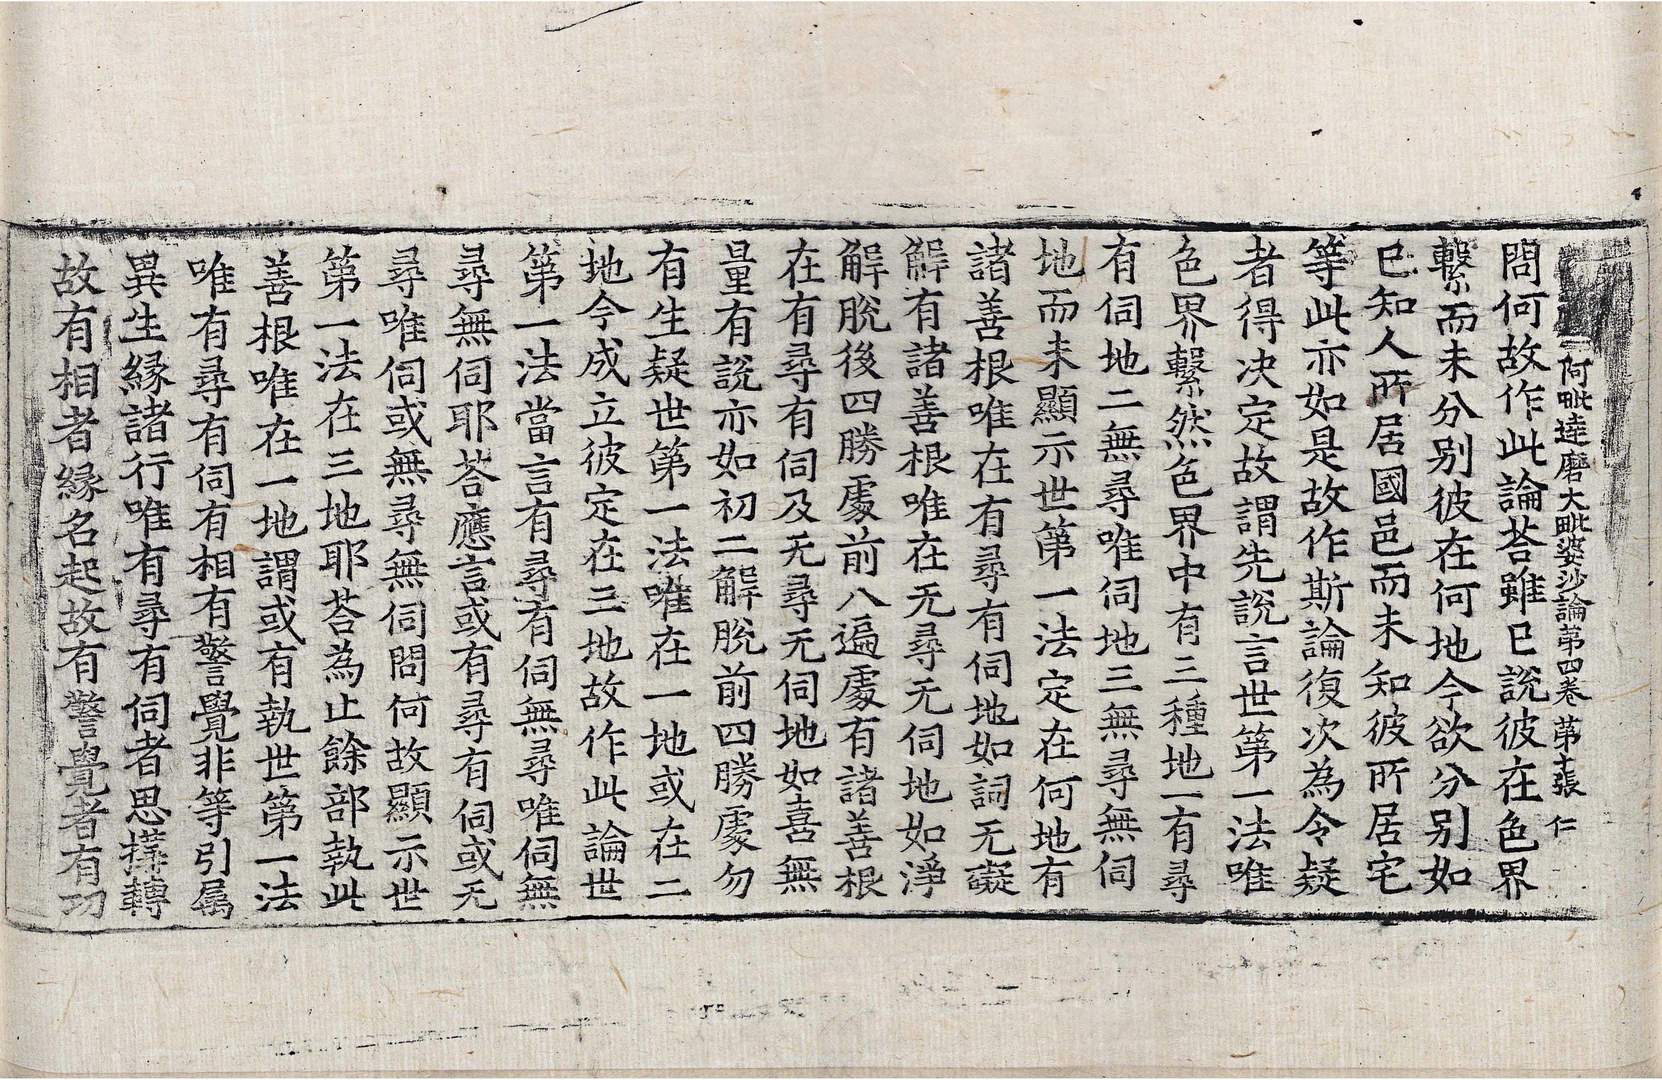 阿毗達磨大毗婆沙論第四卷 第十張 仁
問何故作此論荅雖已說彼在色界
繫而未分別彼在何地今欲分別如
已知人所居國邑而未知彼所居宅
等此亦如是故作斯論復次為令疑
者得决定故謂先說言世第一法唯
色界繫然色界中有三種地一有尋
有伺地二無尋唯伺地三無尋無伺
地而未顯示世第一法定在何地有
諸善根唯在有尋有伺地如詞无礙
解有諸善根唯在无尋无伺地如淨
解脫後四勝處前八遍處有諸善根
在有尋有伺及无尋无伺地如喜無
量有說亦如初二解脫前四勝處勿
有生疑世第一法唯在一地或在二
地今成立彼定在三地故作此論世
第一法當言有尋有伺無尋唯伺無
尋無伺耶荅應言或有尋有伺或无
尋唯伺或無尋無伺問何故顯示世
第一法在三地耶荅為止餘部執此
善根唯在一地謂或有執世第一法
唯有尋有伺有相有警覺非等引属
異生緣諸行唯有尋有伺者思擇轉
故有相者緣名起故有警覺者有功